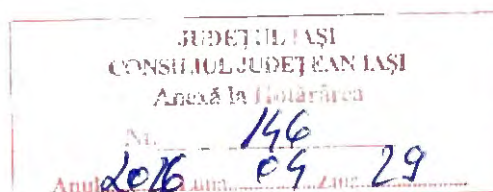 JUDEȚUL IAȘI
CONSILIUL JUDEȚEAN IAȘI
Anexă la Hotărârea
Nr. 146
Anul 2016 Luna 04 Ziua 29